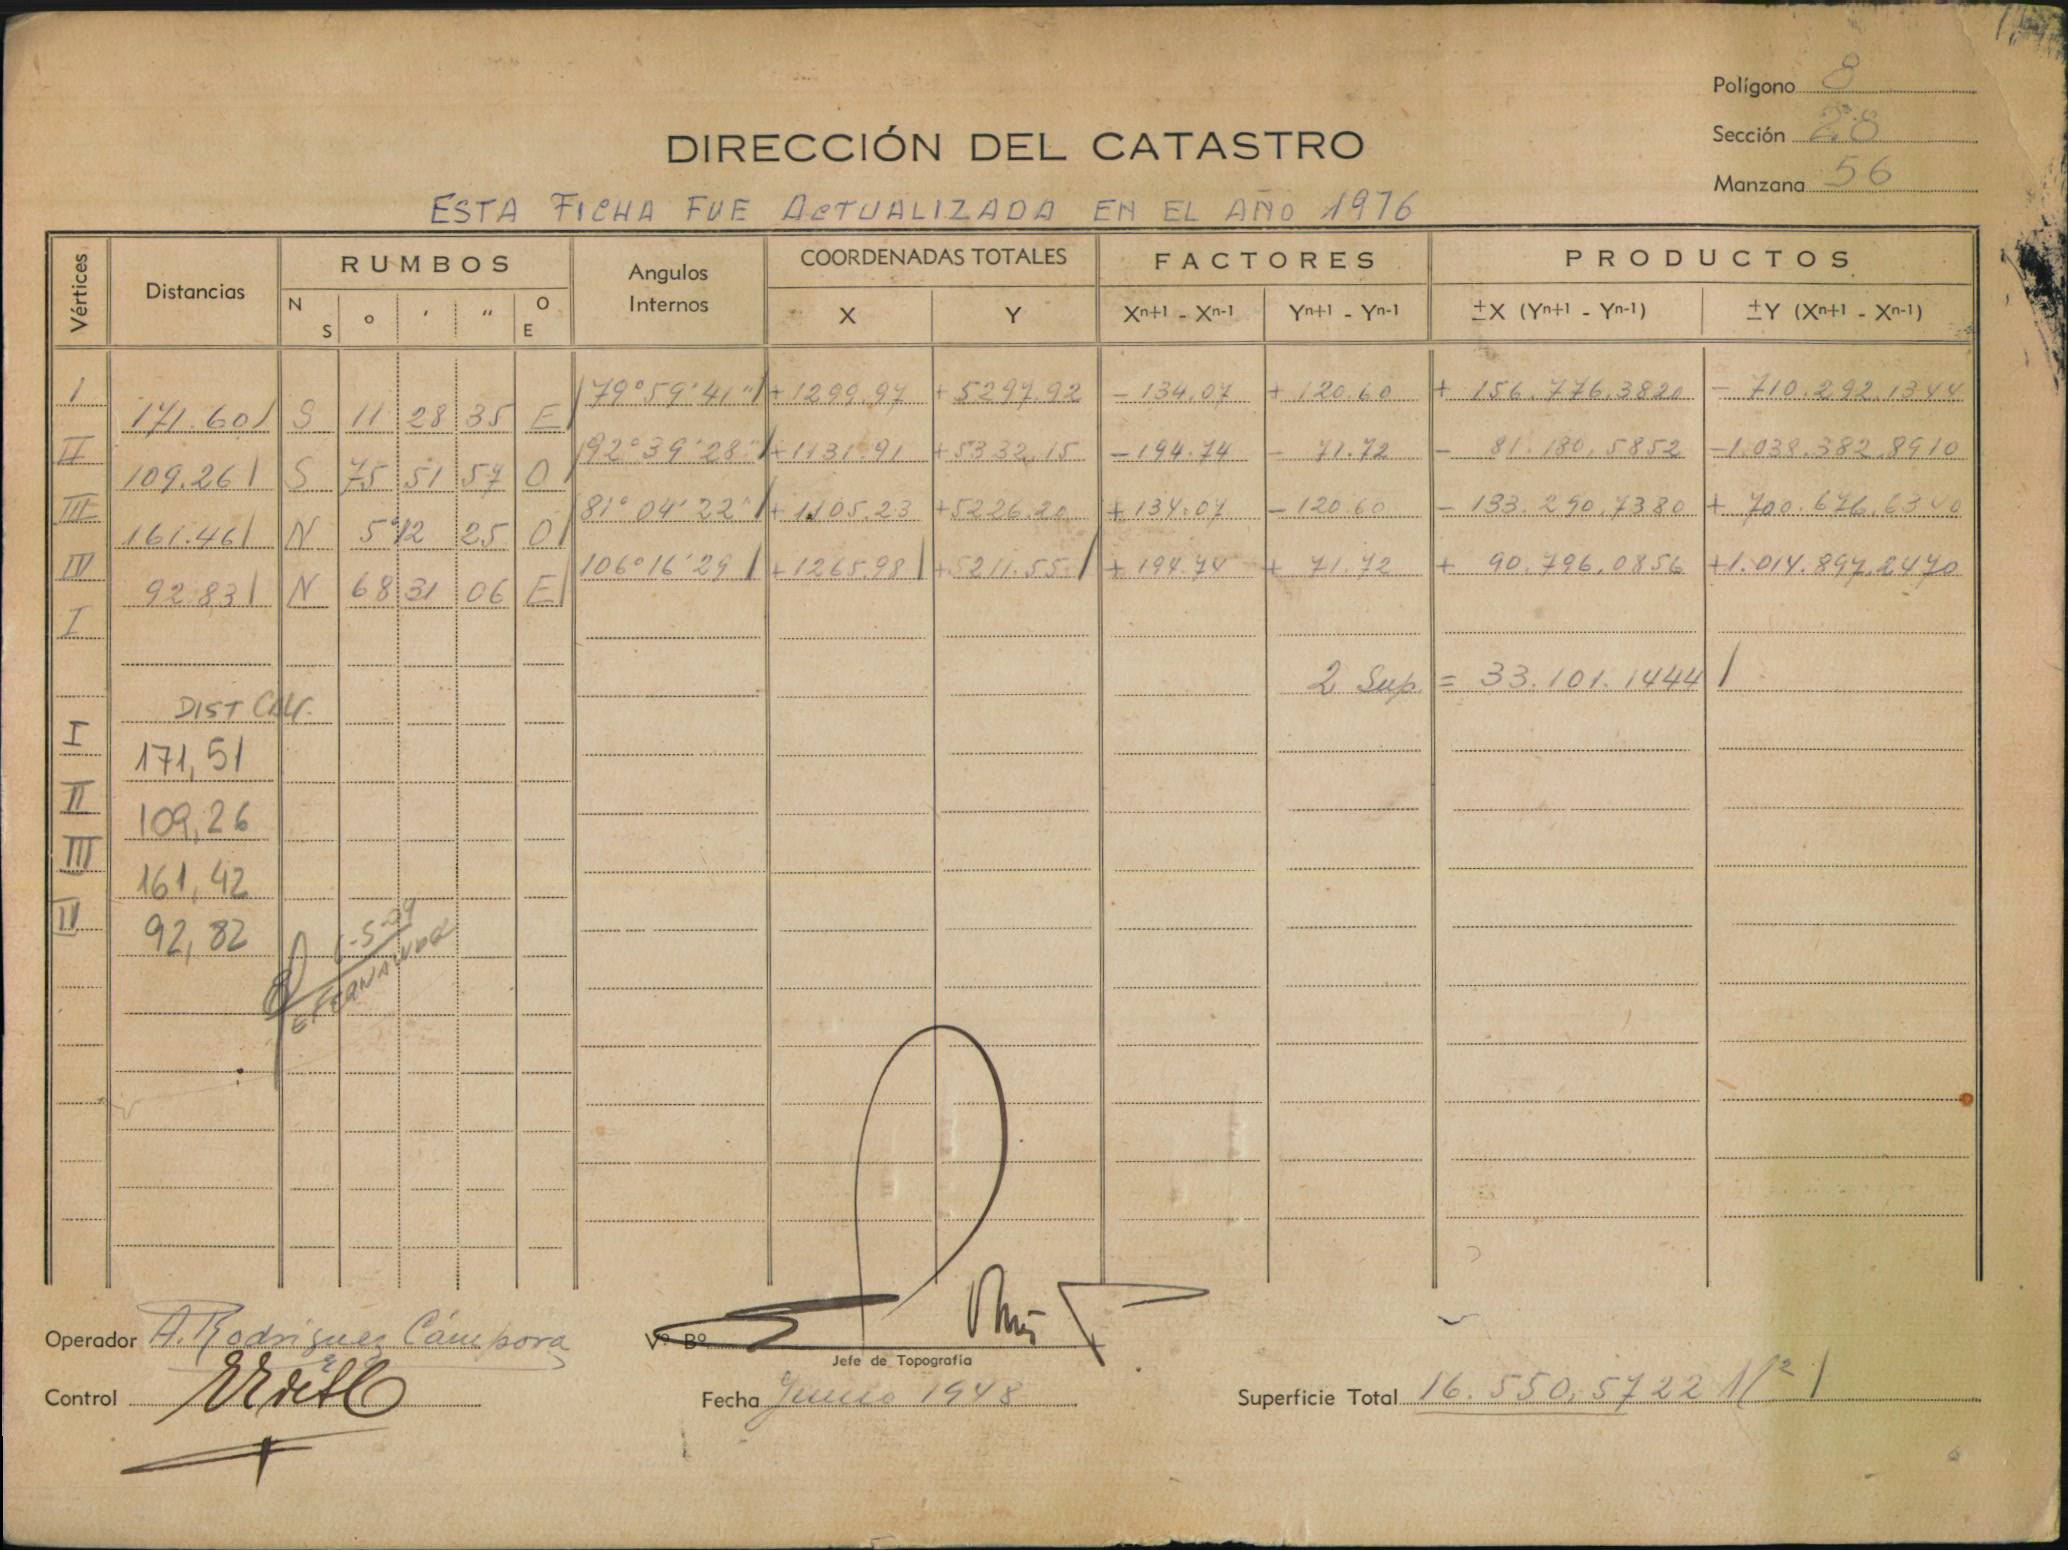 Polígono 8
Sección 28
Manzana 56
DIRECCIÓN DEL CATASTRO
ESTA FICHA FUE ACTUALIZADA EN EL AÑO 1976
Vértices Distancias RUMBOS Angulos Internos COORDENADAS TOTALES FACTORES PRODUCTOS
N S o ' " O E X Y Xn+1 - Xn-1 Yn+1 - Yn-1 ±X (Yn+1 - Yn-1) ±Y (Xn+1 - Xn-1)
I 79°59'41" +1299.97 +5297.92 -134.07 +120.60 +156.776.3820 -710.292.1344
171.60 S 11 28 35 E
II 92°39'28" +1131.91 +5332.15 -194.74 -71.72 -81.180.5852 -1.038.382.8910
109.26 S 75 51 57 O
III 81°04'22" +1105.23 +5226.20 +134.07 -120.60 -133.290.7380 +700.676.6340
161.46 N 5 12 25 O
IV 106°16'29 +1265.98 +5211.55 +194.74 +71.72 +90.796.0856 +1.014.897.2470
92.83 N 68 31 06 E
I
2 Sup. = 33.101.1444
DIST CAL.
I
171,51
II
109,26
III
161,42
IV
92,82
E FERNANDEZ
Operador A. Rodriguez Cámpora
Vº Bº
Jefe de Topografía
Control
Fecha Junio 1948
Superficie Total 16.550,5722 M²